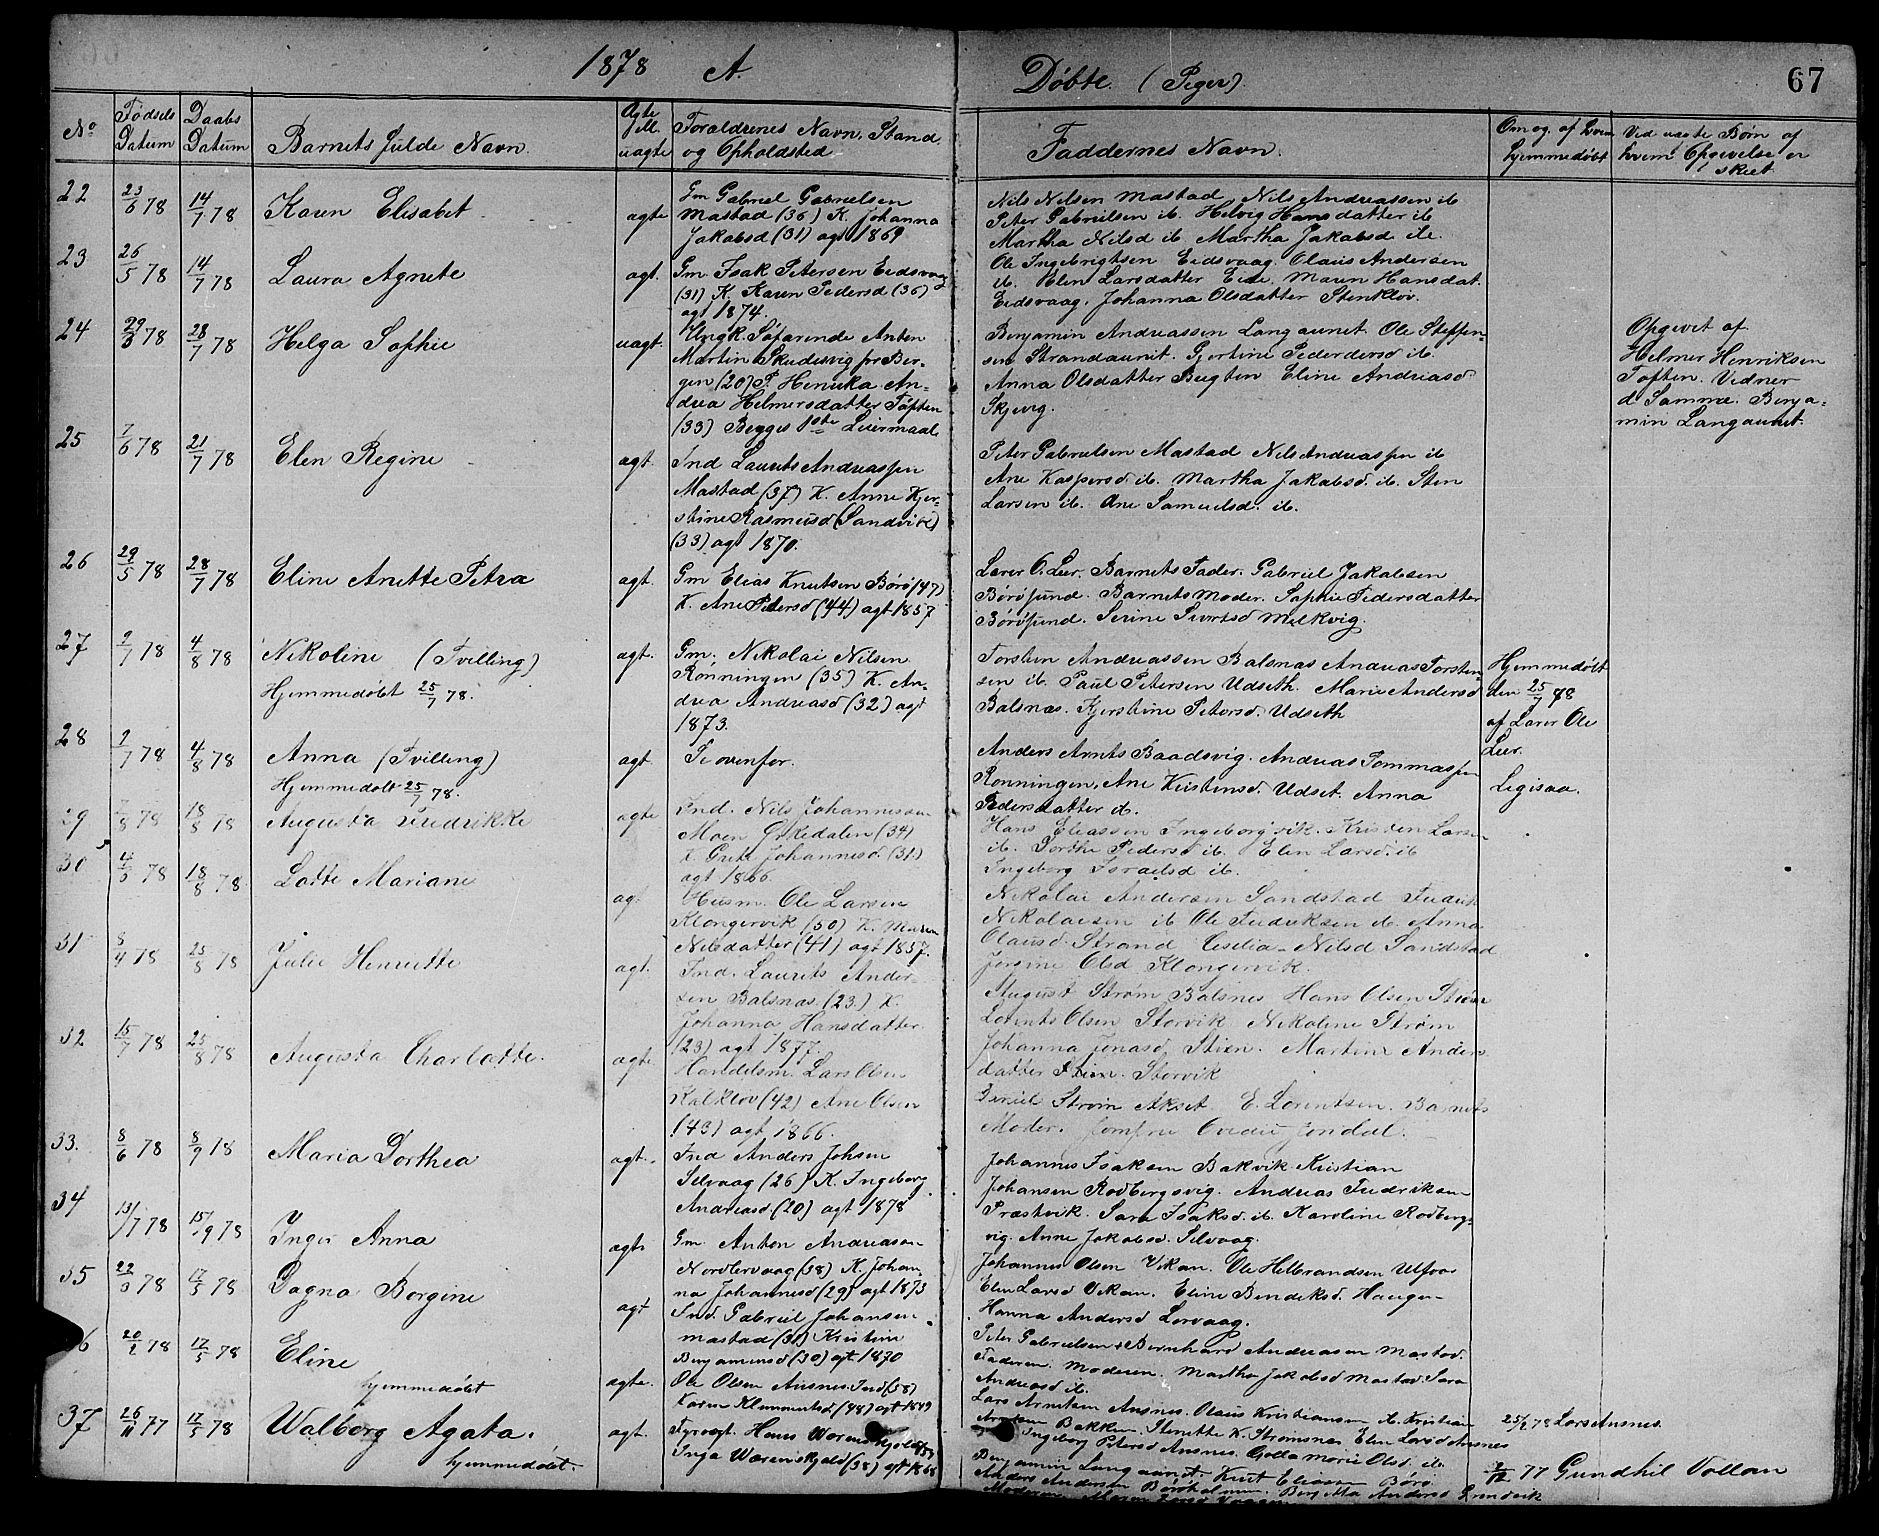 1878 A.
Døbte. (Piger).
67
No
Fødsels Datum
Daabs Datum
Barnets fulde Navn.
Ægte ell. uægte
Forældrenes Navn, Stand og Opholdsted
Faddernes Navn.
Om og af hvem hjemmedøbt
Ved uægte Børn af hvem Opgivelse er skeet
22 23/6 78 14/7 78 Karen Elisabet. agte
Gm Gabriel Gabrielsen
Mastad (36) K. Johanna
Jakobsd (31) agt 1869
Nils Nilsen Mastad Nils Andreassen ib
Peter Gabrielsen ib. Helvig Hansdatter ib
Martha Nilsd ib Martha Jakobsd ib.
23 26/5 78 14/7 78 Laura Agnete agt.
Gm. Isak Petersen Eidsvaag
(31) K. Karen Pedersd (36)
agt 1874.
Ole Ingebrigtsen Eidsvaag. Olaus Andersen
ib. Elen Larsdatter Eide. Maren Hansdat.
Eidsvaag. Johanna Olsdatter Stenkløv.
24 29/3 78 28/7 78 Helga Sophie uagt.
Ungk. Søfarende Anton
Martin Skudesvig fr Ber-
gen (20) P. Henrika An-
drea Helmersdatter Toften
(33) Begges 1ste Leiermaal.
Benjamin Andreassen Langaunet. Ole Steffen-
sen Strandaunit. Gjertine Pedersd ib.
Anna Olsdatter Bugten Eline Andreasd
Skjevig.
Opgivet af
Helmer Henriksen
Toften. Vidner
d. Samme. Benja-
min Langaunet.
25 7/6 78 21/7 78 Elen Regine agt.
Ind Laurits Andreassen
Mastad (37) K. Anne Kjer-
stine Rasmusd (Sandvik)
(33) agt 1870.
Peter Gabrielsen Mastad Nils Andreassen ib
Ane Kaspersd ib. Martha Jakobsd. ib. Sten
Larsen ib. Ane Samuelsd. ib.
26 29/5 78 28/7 78 Eline Anette Petra agt.
Gm Elias Knutsen Børø (47)
K. Ane Petersd (44) agt 1857
Lærer O. Leer. Barnets Fader. Gabriel Jakobsen
Børøsund. Barnets Moder. Sophie Pedersdatter
Børøsund. Serine Sivertsd Melkvig.
27 9/7 78 4/8 78 Nikoline (Tvilling) agt.
Hjemmedøbt 25/7 78.
Gm. Nikolai Nilsen
Rønningen (35) K. An-
drea Andreasd (32) agt
1873.
Torsten Andreassen Balsnæs Andreas Torsten-
sen ib. Paul Petersen Udseth. Marie Andersd
Balsnæs. Kjerstine Petersd. Udseth
Hjemmedøbt
den 25/7 78
af Lærer Ole
Leer.
28 9/7 78 4/8 78 Anna (Tvilling) agt
Hjemmedøbt 25/7 78.
Se ovenfor.
Anders Arnts Baadsvig. Andreas Tommassen
Rønningen. Ane Kristensd. Udset. Anna
Pedersdatter ib.
Ligesaa.
29 7/8 78 18/8 78 Augusta Fredrikke agte
Ind. Nils Johannessen
Moen Ørkedalen (34)
K. Grete Johannesd. (31)
agt 1866.
Hans Eliassen Ingeborgvik. Kristen Larsen
ib. Dorthe Pedersd ib. Elen Larsd. ib
Ingeborg Israelsd ib.
30 4/5 78 18/8 78 Lotte Mariane ag.
Husm. Ole Larsen
Klongervik (50) K. Maren
Nilsdatter (41) agt 1857.
Nikolai Andersen Sandstad Fredrik
Nikolaisen ib Ole Fredriksen ib. Anna
Olausd. Strand Cesilia Nilsd Sandstad
Jørgine Olsd Klongervik.
31 8/4 78 25/8 78 Julie Henriette agt.
Ind. Laurits Ander-
sen Balsnæs. (23.) K.
Johanna Hansdatter.
(23) agt 1877.
August Strøm Balsnes Hans Olsen Strøm
Lorents Olsen Storvik. Nikoline Strøm
Johanna Jonasd. Stien. Martine Anders-
datter Stien. Storvik
32 15/7 78 25/8 78 Augusta Charlotte. agte
Handelsm. Lars Olsen
Kalkløv (42) Ane Olsen
(43) agt 1866.
Strøm Akset E. Lorentsen. Barnets
Moder. Jomfru
33. 8/6 78 8/9 78 Maria Dorthea agt.
Ind Anders Johsen
Selvaag (26) K. Ingeborg
Andreasd (20) agt 1878
Johannes Isaksen Bakvik Kristian
Johansen Rødbergsvig. Andreas Fredriksen
Præstvik. Sara Isaksd. ib. Karoline Rødbergs-
vig. Anne Jakobsd. Selvaag.
34 13/7 78 15/9 78 Inger Anna agte
Gm. Anton Andreasen
Nordbervaag (38) K. Johan-
na Johannesd (29) agt 1873
Johannes Olsen Vikan. Ole Helbrandsen Ulfvos
Elen Larsd Vikan. Eline Bendiksd. Haugen
Hanna Andersd Lervaag.
35 22/3 78 17/5 78 Dagna Borgine agt
Ind. Gabriel Johansen
Mastad (31) Kristine
Benjaminsd (30) agt. 1870
Peter Gabrielsen & Bernhard Andreasen Mastad.
Faderen. Moderen. Martha Jakobsd Mastad. Sara
Andreasd ib.
6 20/2 78 17/5 78 Eline agte.
hjemmedøbt
Ole Olsen Ansnes. Ind (58)
Karen Klemmetsd (48) agt 1849
Lars Arntsen Ansnes. Olaus Kristiansen ib. Kristian
Arntsen Bakken. Henrette K. Strømsnes. Elen Larsd Ansnes
Ingeborg Petersd Ansnes. Golla Marie Olsd. ib.
25/2 78 Lars Ansnes.
37 26/11 77 17/5 78 Walborg Agata. agt.
hjemmedøbt.
Fyrvogt. Hans Wærenskjold
Inga Wærenskjold (38) agt 1868
Benjamin Langaunet. Knut Eliasen Børø
Anders Andersen Børøholmen. Birgitta Andersd Grindvik
77 Gundhil Vollan